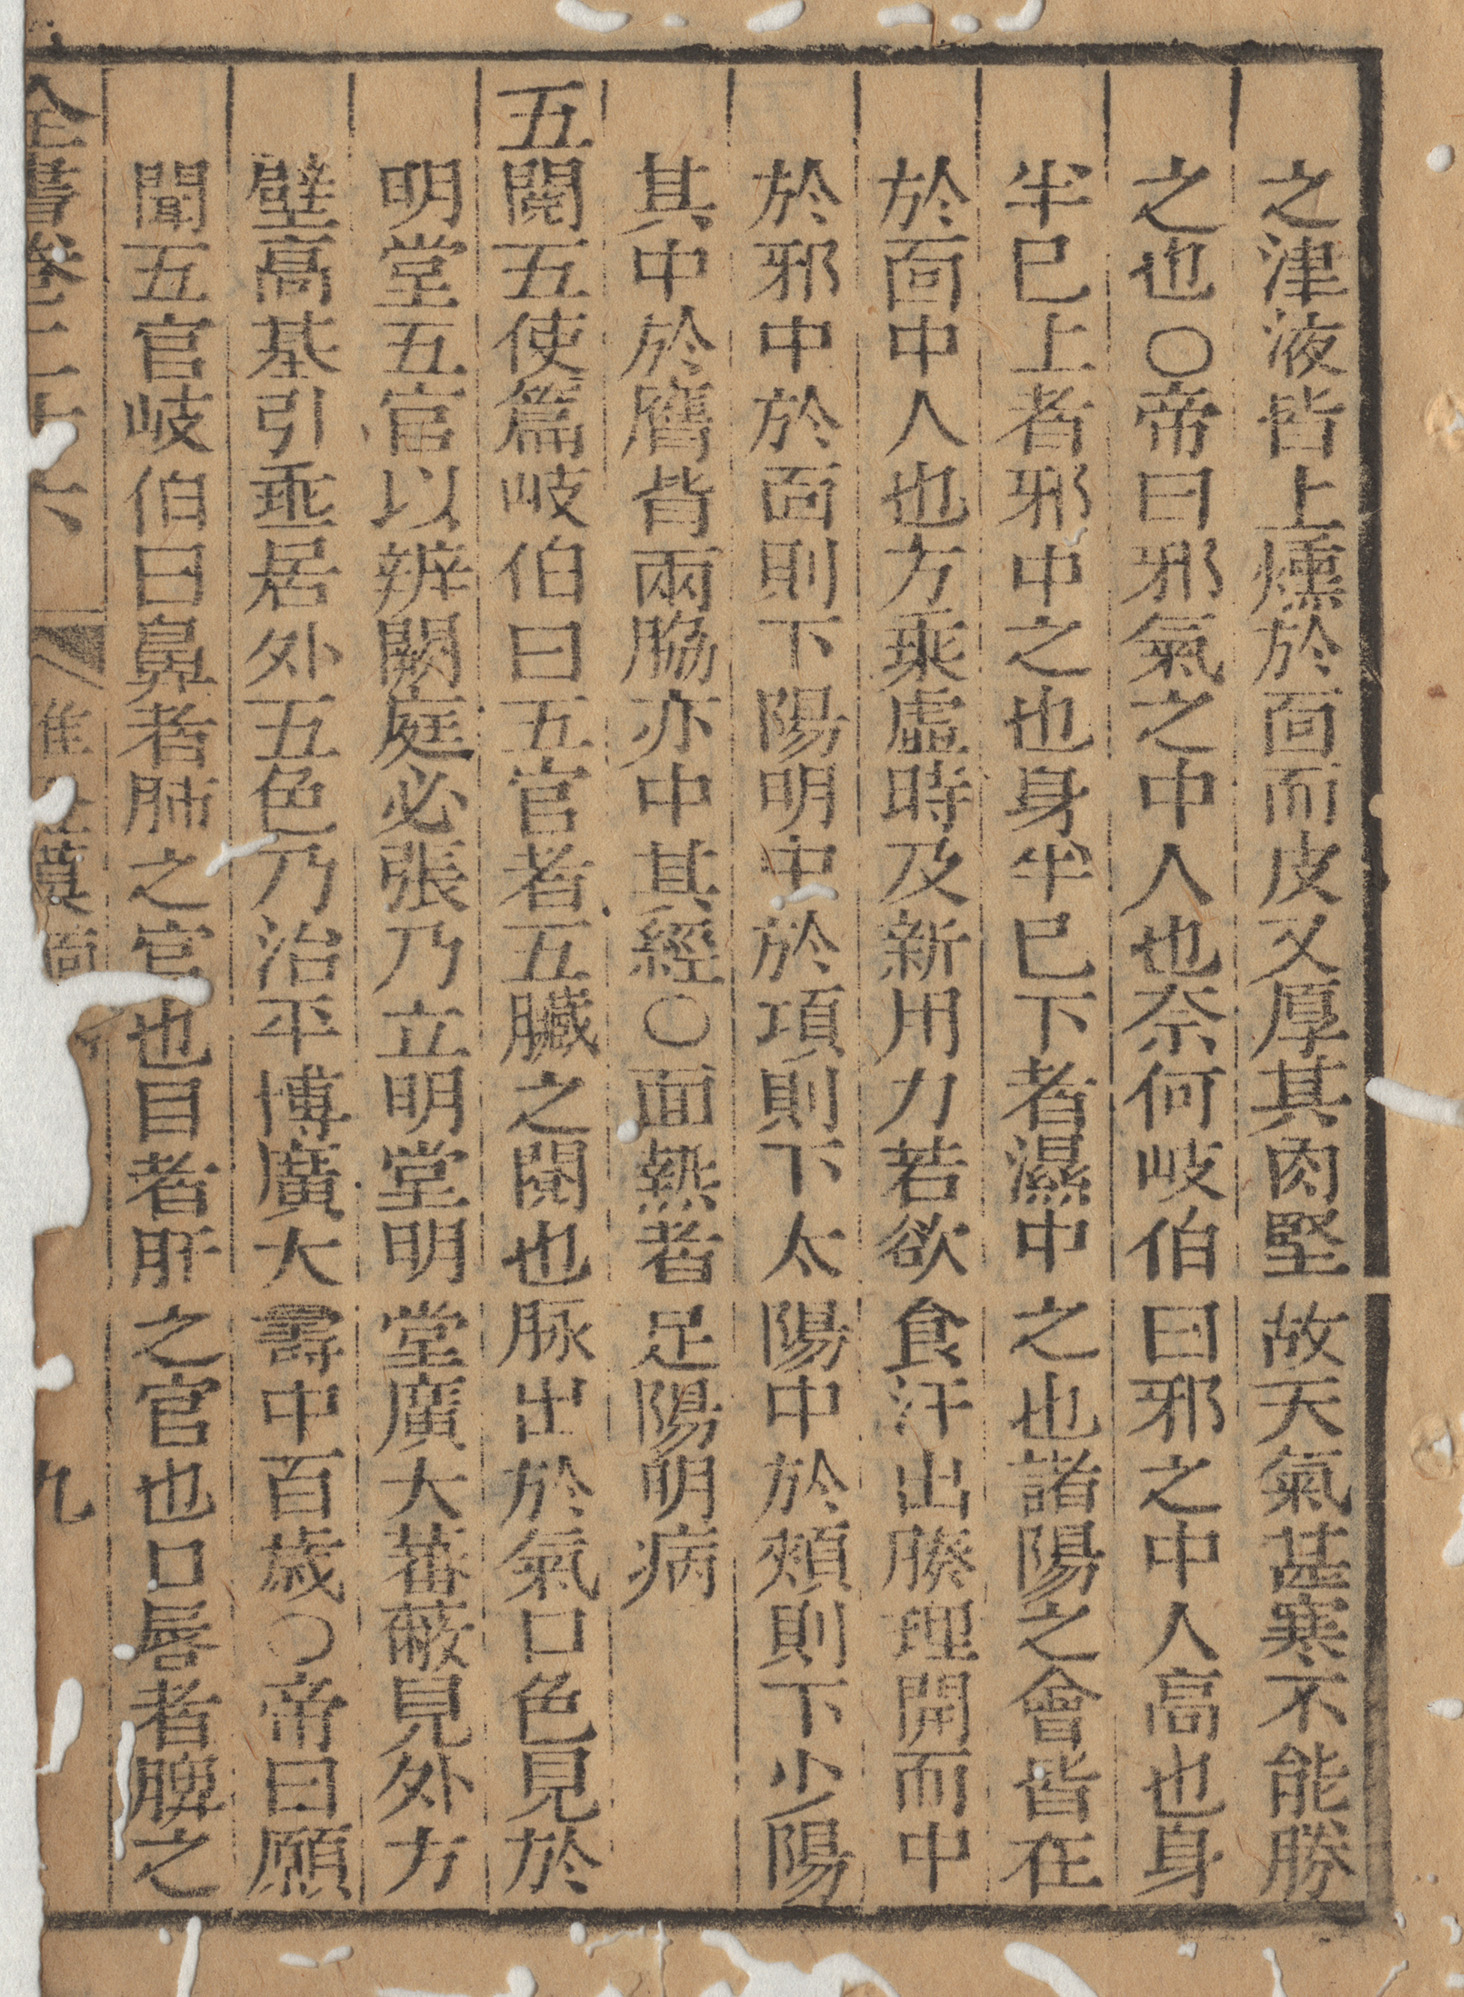 之津液皆上燻於面而皮又厚其肉堅故天氣甚寒不能勝
之也○帝曰邪氣之中人也奈何岐伯曰邪之中人高也身
半已上者邪中之也身半已下者濕中之也諸陽之會皆在
於面中人也方乘虛時及新用力若欲食汗出腠理開而中
於邪中於面則下陽明中於項則下太陽中於頰則下少陽
其中於膺背兩脇亦中其經○面熱者足陽明病
五閱五使篇岐伯曰五官者五臟之閱也脉出於氣口色見於
明堂五官以辨闕庭必張乃立明堂明堂廣大蕃蔽見外方
壁高基引垂居外五色乃治平博廣大壽中百歲○帝曰願
聞五官岐伯曰鼻者肺之官也目者肝之官也口唇者脾之
全書卷二十六 九